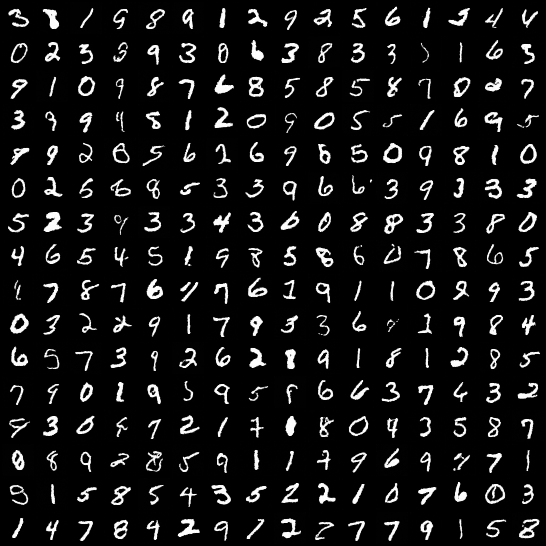 3 8 1 9 8 9 1 2 9 2 5 6 1 5 4 4
0 2 3 3 9 3 0 6 3 8 3 3 1 6 5
9 1 0 9 8 7 6 8 5 8 5 8 7 0 2 7
3 9 9 4 8 1 2 0 9 0 5 5 1 6 9 5
9 2 8 5 6 1 6 9 8 5 0 9 8 1 0
0 2 5 8 8 5 3 3 9 6 6 3 9 3 3 3
5 2 3 9 3 3 4 3 0 0 8 8 3 3 8 0
4 6 5 4 5 1 9 8 5 8 6 0 7 8 6 5
7 8 7 6 7 6 1 9 1 1 0 9 9 3
0 3 2 2 9 1 7 9 3 3 6 1 9 8 4
6 5 7 3 9 2 6 2 8 9 1 8 1 2 8 5
7 9 0 1 9 5 9 5 8 6 6 3 7 4 3 2
9 3 0 9 7 2 1 7 8 0 4 3 5 8 7
0 8 9 2 8 5 9 1 1 7 9 6 9 7 1
9 1 5 8 5 4 3 5 2 2 1 0 7 6 0 3
1 4 7 8 9 2 9 1 2 2 7 7 9 1 5 8